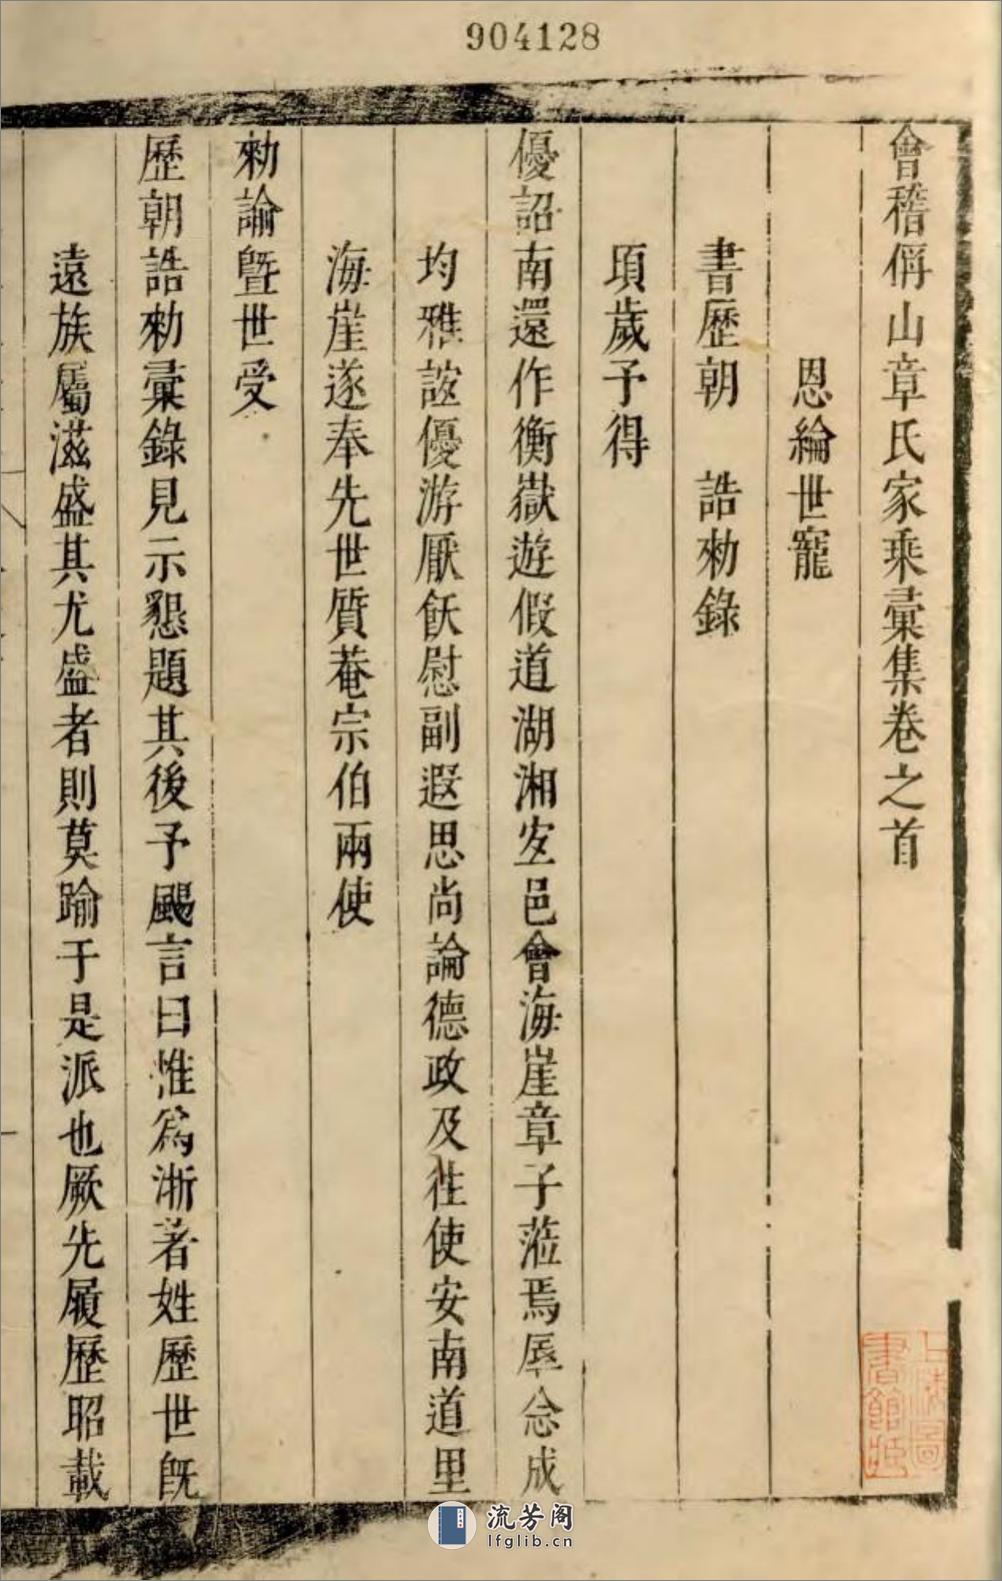 904128
會稽偁山章氏家乘彙集卷之首
恩綸世寵
書歷朝 誥勅錄
項歲予得
優詔南還作衡嶽遊假道湖湘安邑會海崖章子蒞焉辱念成
均雅誼優游厭飫慰副遐思尚論德政及往使安南道里
海崖遂奉先世質菴宗伯兩使
勅諭暨世受
歷朝誥勅彙錄見示懇題其後予颺言曰惟爲浙著姓歷世旣
遠族屬滋盛其尤盛者則莫踰于是派也厥先履歷昭載
上海圖
書館藏
流芳阁
lfglib.cn